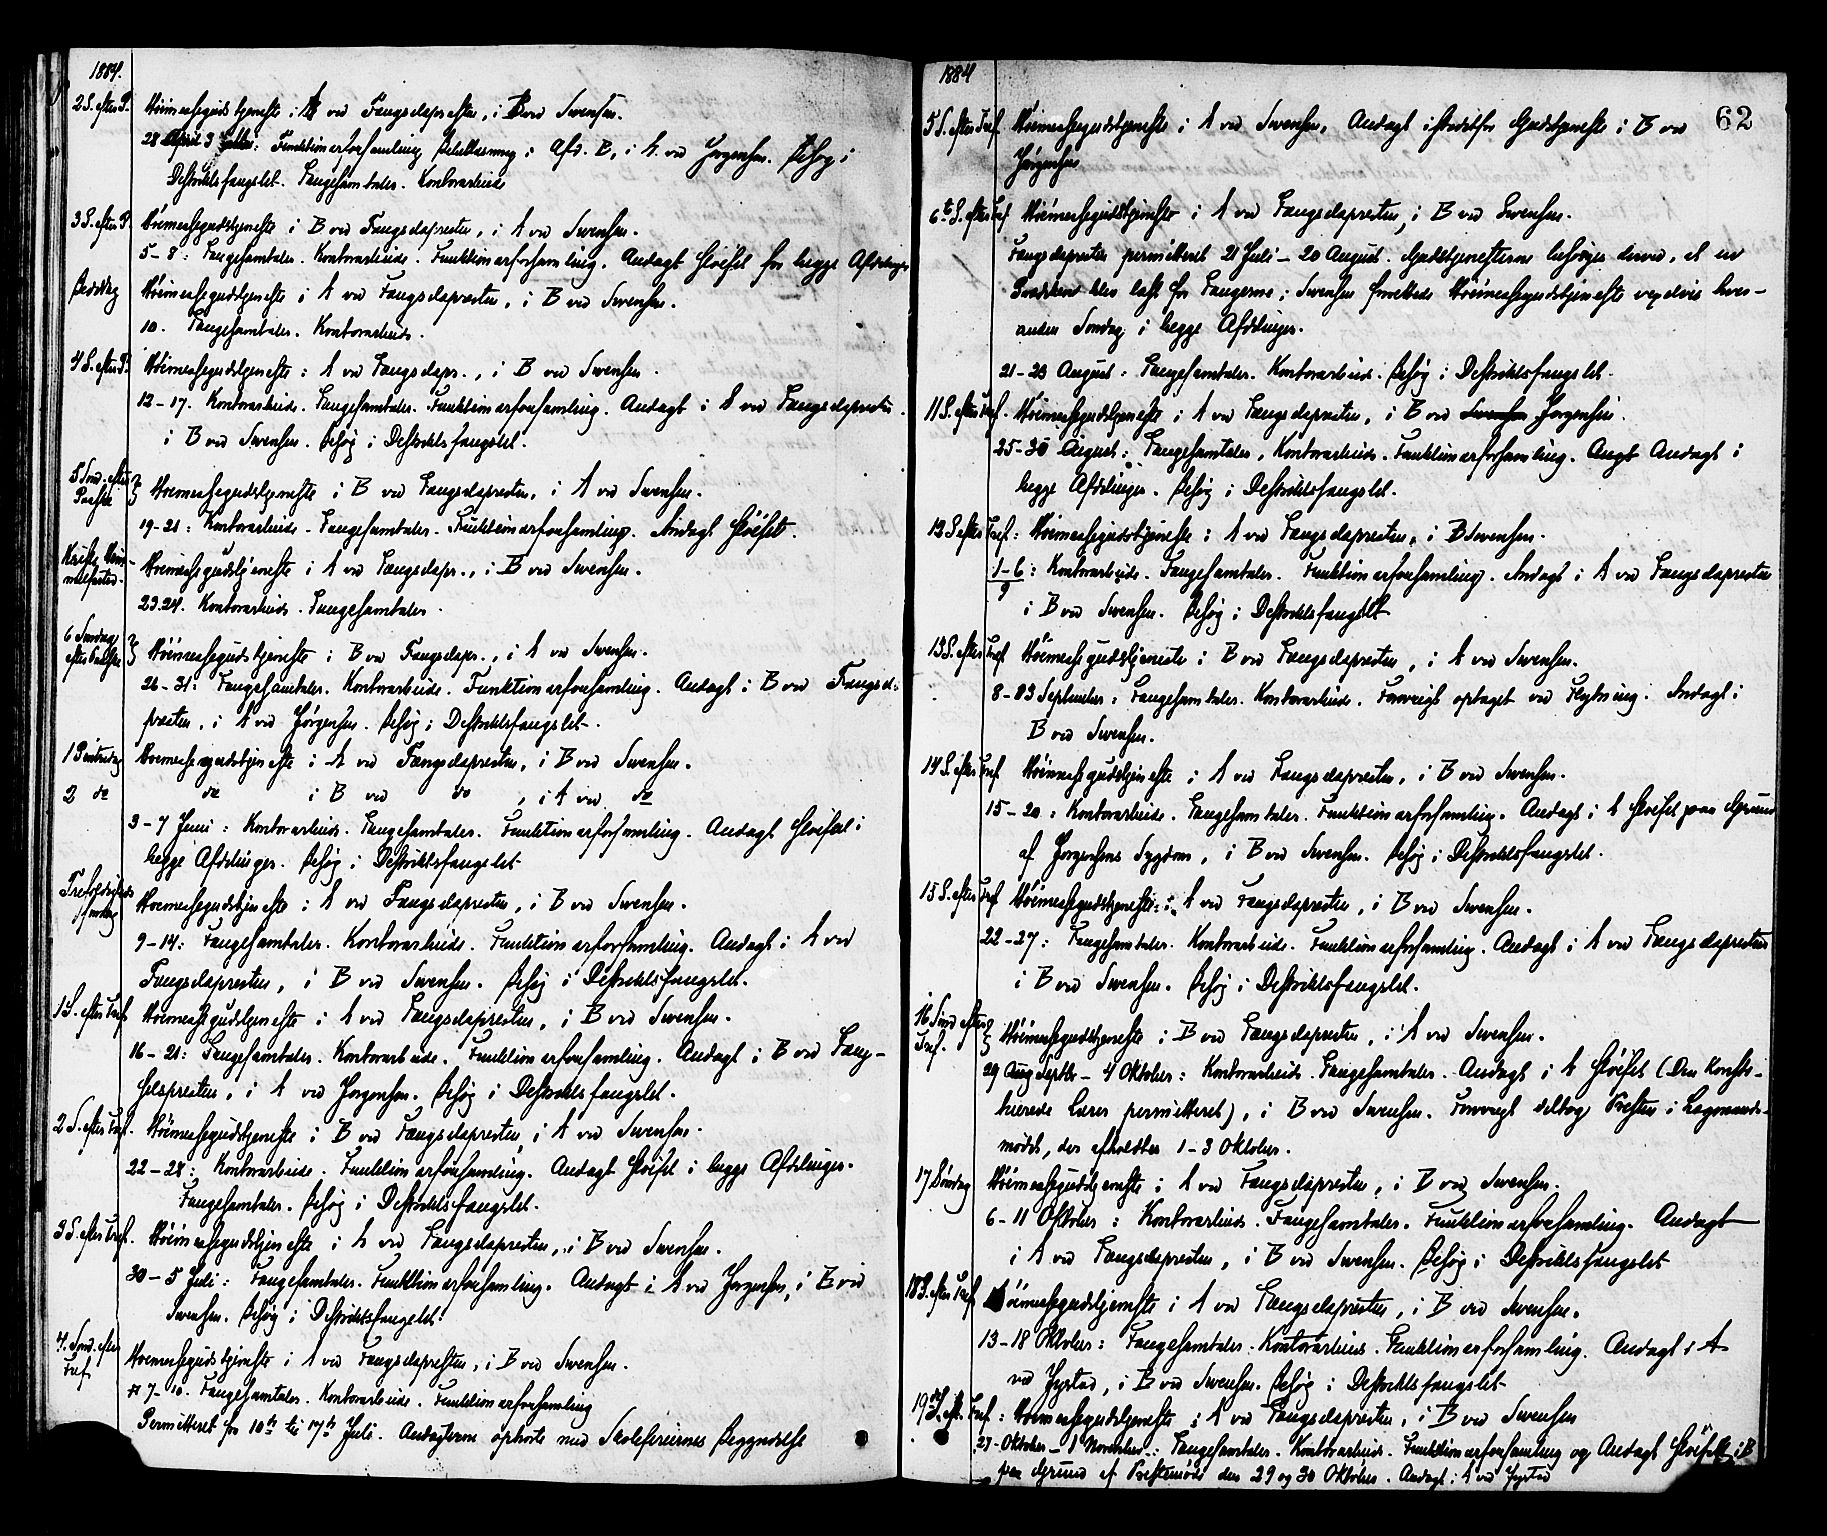 1884.
2 S. efter P. Höimessegudstjeneste i A ved Fangselspresten, i B ved Svensen.
28 April 3 Funktionærforsamling Bibellæsning i Afd. B, i A. ved Jørgensen. Besøg i
Distriktsfængslet. Fangesamtaler. Kontorarbeide
3 S. efter P. Höimessegudstjeneste i B ved Fangselspresten, i A ved Svensen.
5-8: Fangesamtaler. Kontorarbeide. Funktionærforsamling. Andagt sløifet for begge Afdelinger
Bededag Höimessegudstjeneste i A ved Fangselspresten, i B ved Svensen.
10. Fangesamtaler. Kontorarbeide.
4 S. efter P. Höimessegudstjeneste i A ved Fangselspr., i B ved Svensen.
12-17. Kontorarbeide. Fangesamtaler. Funktionærforsamling. Andagt i A ved Fangselspresten.
i B ved Svensen. Besøg i Distriktsfængslet.
5 Sønd. efter Paaske Höimessegudstjeneste i B ved Fangselspresten, i A ved Svensen.
19-21: Kontorarbeide. Fangesamtaler. Funktionærforsamling. Andagt sløifet.
Kristi Him-
melfartsd. Höimessegudstjeneste i A ved Fangselspr., i B ved Svensen.
23.24. Kontorarbeide. Fangesamtaler.
6 Søndag efter Paaske Höimessegudstjeneste i B ved Fangselspr., i A ved Svensen.
26-31: Fangesamtaler. Kontorarbeide. Funktionærforsamling. Andagt i B ved Fangsels-
presten, i A ved Jørgensen. Besøg i Distriktsfængslet.
1 Pintsedag Höimessegudstjeneste i A ved Fangselspresten, i B ved Svensen.
2 do do i B ved do, i A ved do
3-7 Juni: Kontorarbeide. Fangesamtaler. Funktionærforsamling. Andagt sløifet i
begge Afdelinger. Besøg i Distriktsfængslet
Trefoldigheds
søndag Höimessegudstjeneste i A ved Fangselspresten, i B ved Svensen.
9-14: Fangesamtaler. Kontorarbeide. Funktionærforsamling. Andagt i A ved
Fangselspresten, i B ved Svensen. Besøg i Distriktsfængslet.
1 S. efter Tref. Höimessegudstjeneste i A ved Fangselspresten, i B ved Svensen.
16-21: Fangesamtaler. Kontorarbeide. Funktionærforsamling. Andagt i B ved Fæng-
selspresten, i A ved Jørgensen. Besøg i Distriktsfængslet.
2 S. efter Tref. Höimessegudstjeneste i B ved Fangselspresten, i A ved Svensen.
22-28: Kontorarbeide. Funktionærforsamling. Andagt sløifet i begge Afdelinger.
Fangesamtaler. Besøg i Distriktsfængslet.
3 S. efter Tref. Höimessegudstjeneste i A ved Fangselspresten, i B ved Svensen.
30-5 Juli: Fangesamtaler. Funktionærforsamling. Andagt i A ved Jørgensen, i B ved
Svensen. Besøg i Distriktsfængslet.
4. Sønd. efter
Tref. Höimessegudstjeneste i A ved Fangselspresten, i B ved Svensen.
7-10. Fangesamtaler. Kontorarbeide. Funktionærforsamling
Permitteret fra 10de til 17de Juli. Andagterne ophørte med Skoleferiernes Begyndelse
1884
62
5 S. efter Tref. Höimessegudstjeneste i A ved Svensen, Andagt istedetfor Gudstjeneste i B ved
Jørgensen
6te S. efter Tref. Höimessegudstjeneste i A ved Fangselspresten, i B ved Svensen.
Fangselspresten permitteret 21 Juli - 20 August. Gudstjenesterne besørges derved, at en
Prædiken blev læst for Fangerne; Svensen forrettede Höimessegudstjeneste vexelvis hver-
anden Søndag i begge Afdelinger.
21-23 August: Fangesamtaler. Kontorarbeide. Besøg i Distriktsfængslet.
11 S. efter Tref. Höimessegudstjeneste i A ved Fangselspresten, i B ved Svensen Jørgensen.
25-30 August: Fangesamtaler, Kontorarbeide. Funktionærforsamling. Andagt i
begge Afdelinger. Besøg i Distriktsfængslet.
12 S efter Tref.: Höimessegudstjeneste i A ved Fangselspresten, i B Svensen.
1-6/9: Kontorarbeide. Fangesamtaler. Funktionærforsamling. Andagt i A ved Fangselspresten
i B ved Svensen. Besøg i Distriktsfængslet
13 S. efter Tref. Höimessegudstjeneste i B ved Fangselspresten, i A ved Svensen.
8-13 September: Fangesamtaler. Kontorarbeide. Forøvrigt optaget ved Flytning. Andagt i
B ved Svensen.
14 S. efter Tref. Höimessegudstjeneste i A ved Fangselspresten, i B ved Svensen.
15-20: Kontorarbeide. Fangesamtaler. Funktionærforsamling. Andagt i A sløifet paa Grund
af Jørgensens Sygdom, i B ved Svensen. Besøg i Distriktsfængslet.
15 S. efter Tref. Höimessegudstjeneste i A ved Fangselspresten, i B ved Svensen.
22-27: Fangesamtaler. Kontorarbeide. Funktionærforsamling. Andagt i A ved Fangselspresten
i B ved Svensen. Besøg i Distriktsfængslet.
16 Sønd efter
Tref. Höimessegudstjeneste i B ved Fangselspresten, i A ved Svensen.
29 Aug Septbr - 4 Oktober: Kontorarbeide. Fangesamtaler. Andagt i A sløifet (Den konsti-
tuerede Lærer permitteret), i B ved Svensen. Forøvrigt deltog Presten i Lagmands-
mødet, der afholdtes 1-3 Oktober.
17 Søndag Höimessegudstjeneste i A ved Fangselspresten, i B ved Svensen.
6-11 Oktober: Kontorarbeide. Fangesamtaler. Funktionærforsamling. Andagt
i A ved Fangselspresten, i B ved Svensen. Besøg i Distriktsfængslet
18 S. efter Tref. Höimessegudstjeneste i A ved Fangselspresten, i B ved Svensen.
13-18 Oktober: Fangesamtaler. Kontorarbeide. Funktionærforsamling. Andagt i A
ved Fystad, i B ved Svensen. Besøg i Distriktsfængslet
19de S. eft. Tref.: Höimessegudstjeneste i A ved Fangselspresten, i B ved Svensen
27 Oktober - 1 November: Fangesamtaler. Kontorarbeide. Funktionærforsamling og Andagt sløifet i B
paa Grund af Prestemøde den 29 og 30 Oktober. Andagt i A ved Fystad